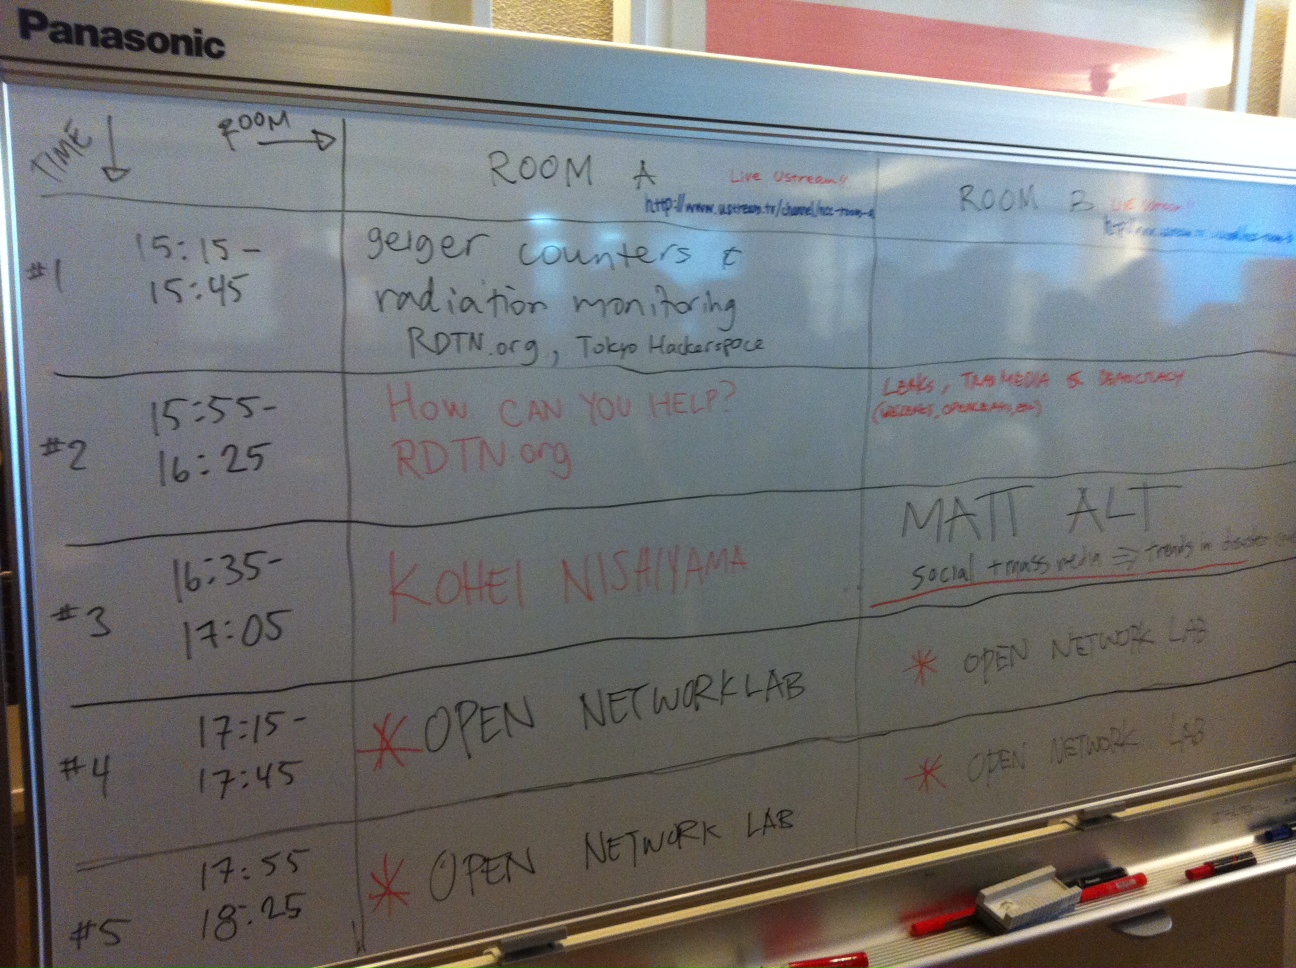 Panasonic
TIME
ROOM
ROOM A
Live Ustream!!
http://www.ustream.tv/channel/ncc-room-a
ROOM B
Live
#1
15:15-
15:45
geiger counters &
radiation monitoring
RDTN.org, Tokyo Hackerspace
#2
15:55-
16:25
How CAN YOU HELP?
RDTN.org
LEAKS, TRAD MEDIA & DEMOCRACY
#3
16:35-
17:05
KOHEI NISHIYAMA
MATT ALT
social + mass media => trends in disaster
#4
17:15-
17:45
* OPEN NETWORK LAB
* OPEN NETWORK LAB
#5
17:55
18:25
* OPEN NETWORK LAB
* OPEN NETWORK LAB